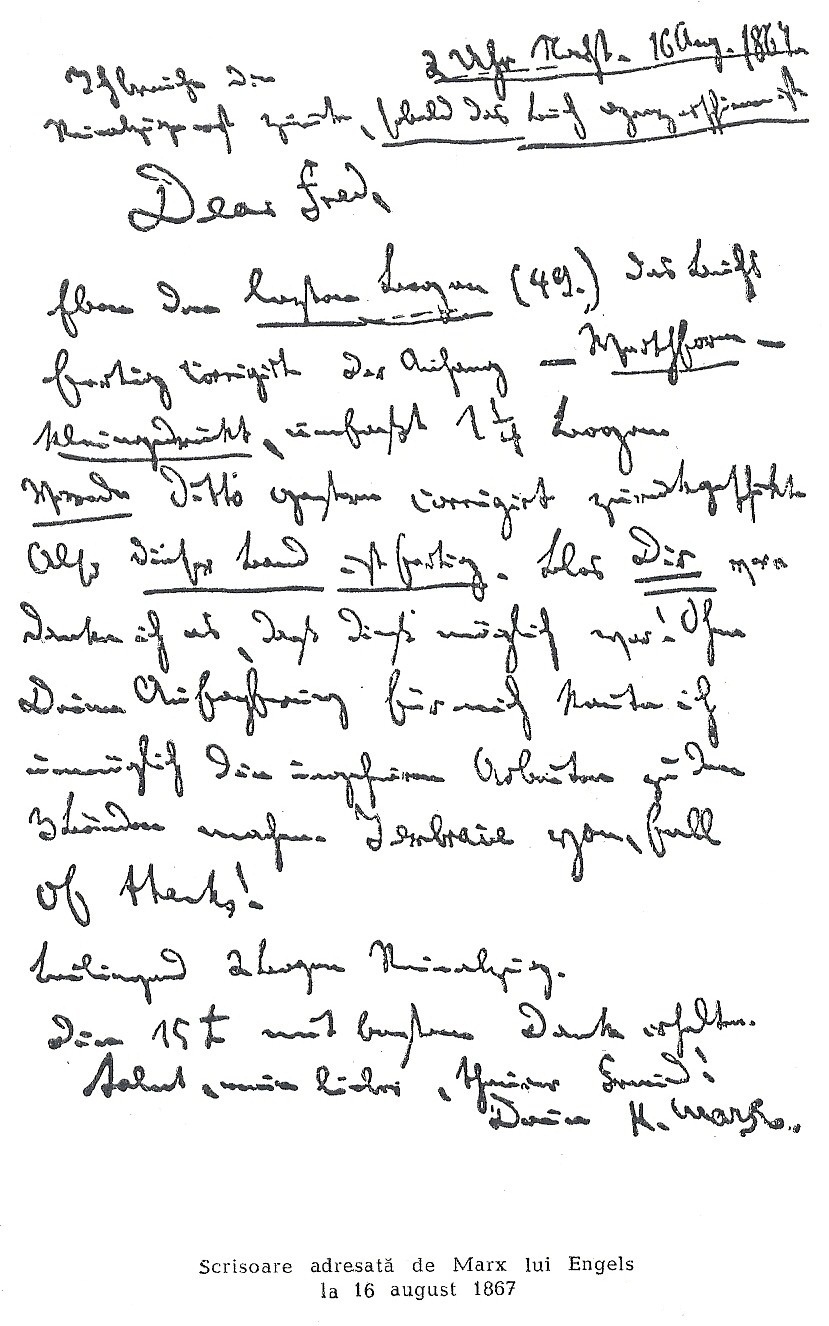 2 Uhr Nacht. 16 Aug. 1867.
Ich brauche die
Reinabzüge erst zurück, sobald das Buch ganz erschienen ist
Dear Fred,
Eben den letzten Bogen (49.) des Buchs
fertig corrigirt. Der Anhang – Werthform –
kleingedruckt, umfaßt 1 1/4 Bogen
Vorrede ditto gestern corrigirt zurückgeschickt
Also dieser Band ist fertig. Blos Dir ver
danke ich es, daß dieß möglich war! Ohne
Deine Aufopferung für mich konnte ich
unmöglich die ungeheuren Arbeiten zu den
3 Bänden machen. I embrace you, full
of thanks!
Beiliegend 2 Bogen Reinabzug.
Die 15 £ mit bestem Dank erhalten.
Salut, mein lieber, theurer Freund!
Dein K. Marx.
Scrisoare adresată de Marx lui Engels
la 16 august 1867